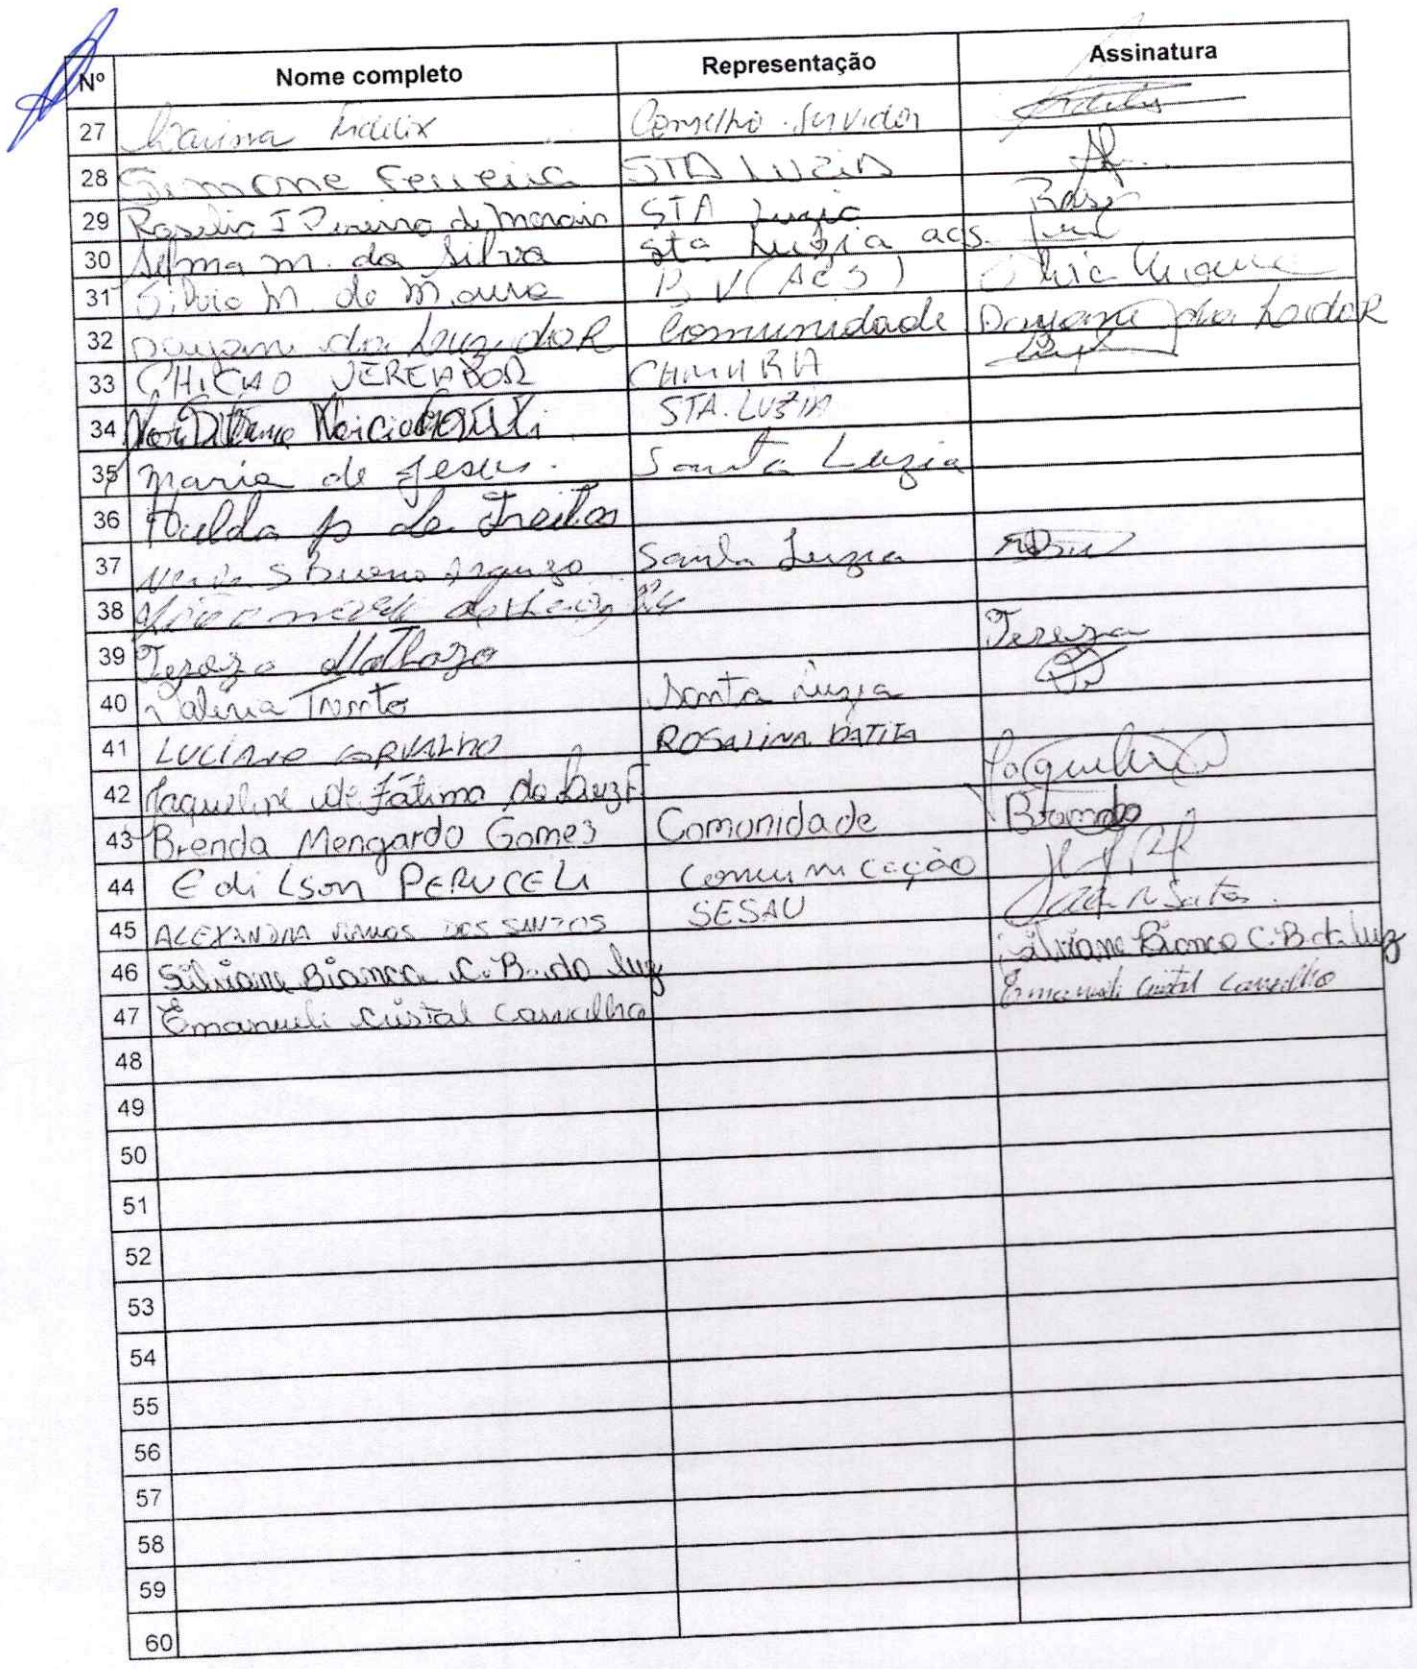 Nº Nome completo Representação Assinatura
27 Karina Fidelix Conselho Servidor
28 Simone Ferreira STA LUZIA
29 Roselia I Pereira de Morais STA Luzia Rosi
30 Selma M. da Silva Sta Luzia acs.
31 Silvia M. de Moura B V (ACS)
32 Dayane da Luz doR Comunidade Dayane da LuzdoR
33 CHICÃO VEREADOR CAMARA
34 STA. LUZIA
35 Maria de Jesus. Santa Luzia
36 Hulda p de Freitas
37 S Bueno Santa Luzia
38
39 Tereza Tereza
40 Valeria Trento Santa Luzia
41 LUCIANO CARVALHO ROSALINA BATITA
42 Jaqueline de Fátima da Luz F Jaqueline
43 Brenda Mengardo Gomes Comunidade Brenda
44 Edilson PERUCELI Comunicação
45 ALEXANDRA RAMOS DOS SANTOS SESAU
46 Silviane Bianca C. B. da Luz Silviane Bianca C. B da Luz
47 Emanueli Cristal Carvalho Emanueli Cristal Carvalho
48
49
50
51
52
53
54
55
56
57
58
59
60